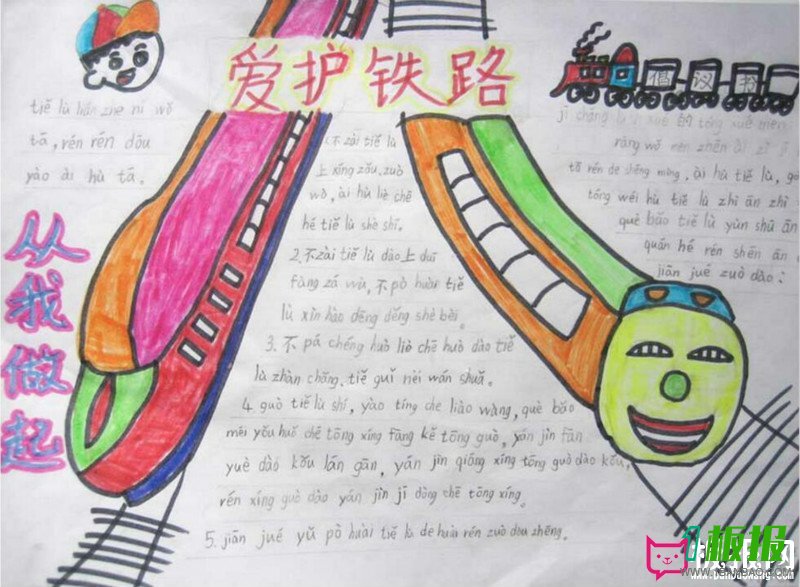 爱护铁路
倡议书
tiě lù bàn zhe nǐ wǒ
tā, rén rén dōu
yào ài hù tā.
从我做起
jī chǎng lù xiǎo xué 的 tóng xué men
ràng wǒ mén zhēn ài zì jǐ
tā rén de shēng mìng, ài hù tiě lù, go
tóng wéi hù tiě lù zhì ān zhì
què bǎo tiě lù yùn shū ān
quán hé rén shēn ān
jiān jué zuò dào:
不 zài tiě lù
上 xíng zǒu, zuò
wò, ài hù liè chē
hé tiě lù shè shī.
2. 不 zài tiě lù dào 上 duī
fàng zá wù, 不 pò huài tiě
lù xìn hào dēng děng shè bèi.
3. 不 pá chéng huǒ liè chē huò dào tiě
lù zhàn chǎng, tiě guǐ nèi wán shuǎ.
4. guò tiě lù shí, yào tíng che liào wàng, què bǎo
méi yǒu huǒ chē tōng xíng fāng kě tōng guò, yán jìn fān
yuè dào kǒu lán gān, yán jìn qiǎng xíng tōng guò dào kǒu,
rén xíng guò dào yán jìn jī dòng chē tōng xíng.
5. jiān jué yǔ pò huài tiě lù de huài rén zuò dou zhēng.
板报